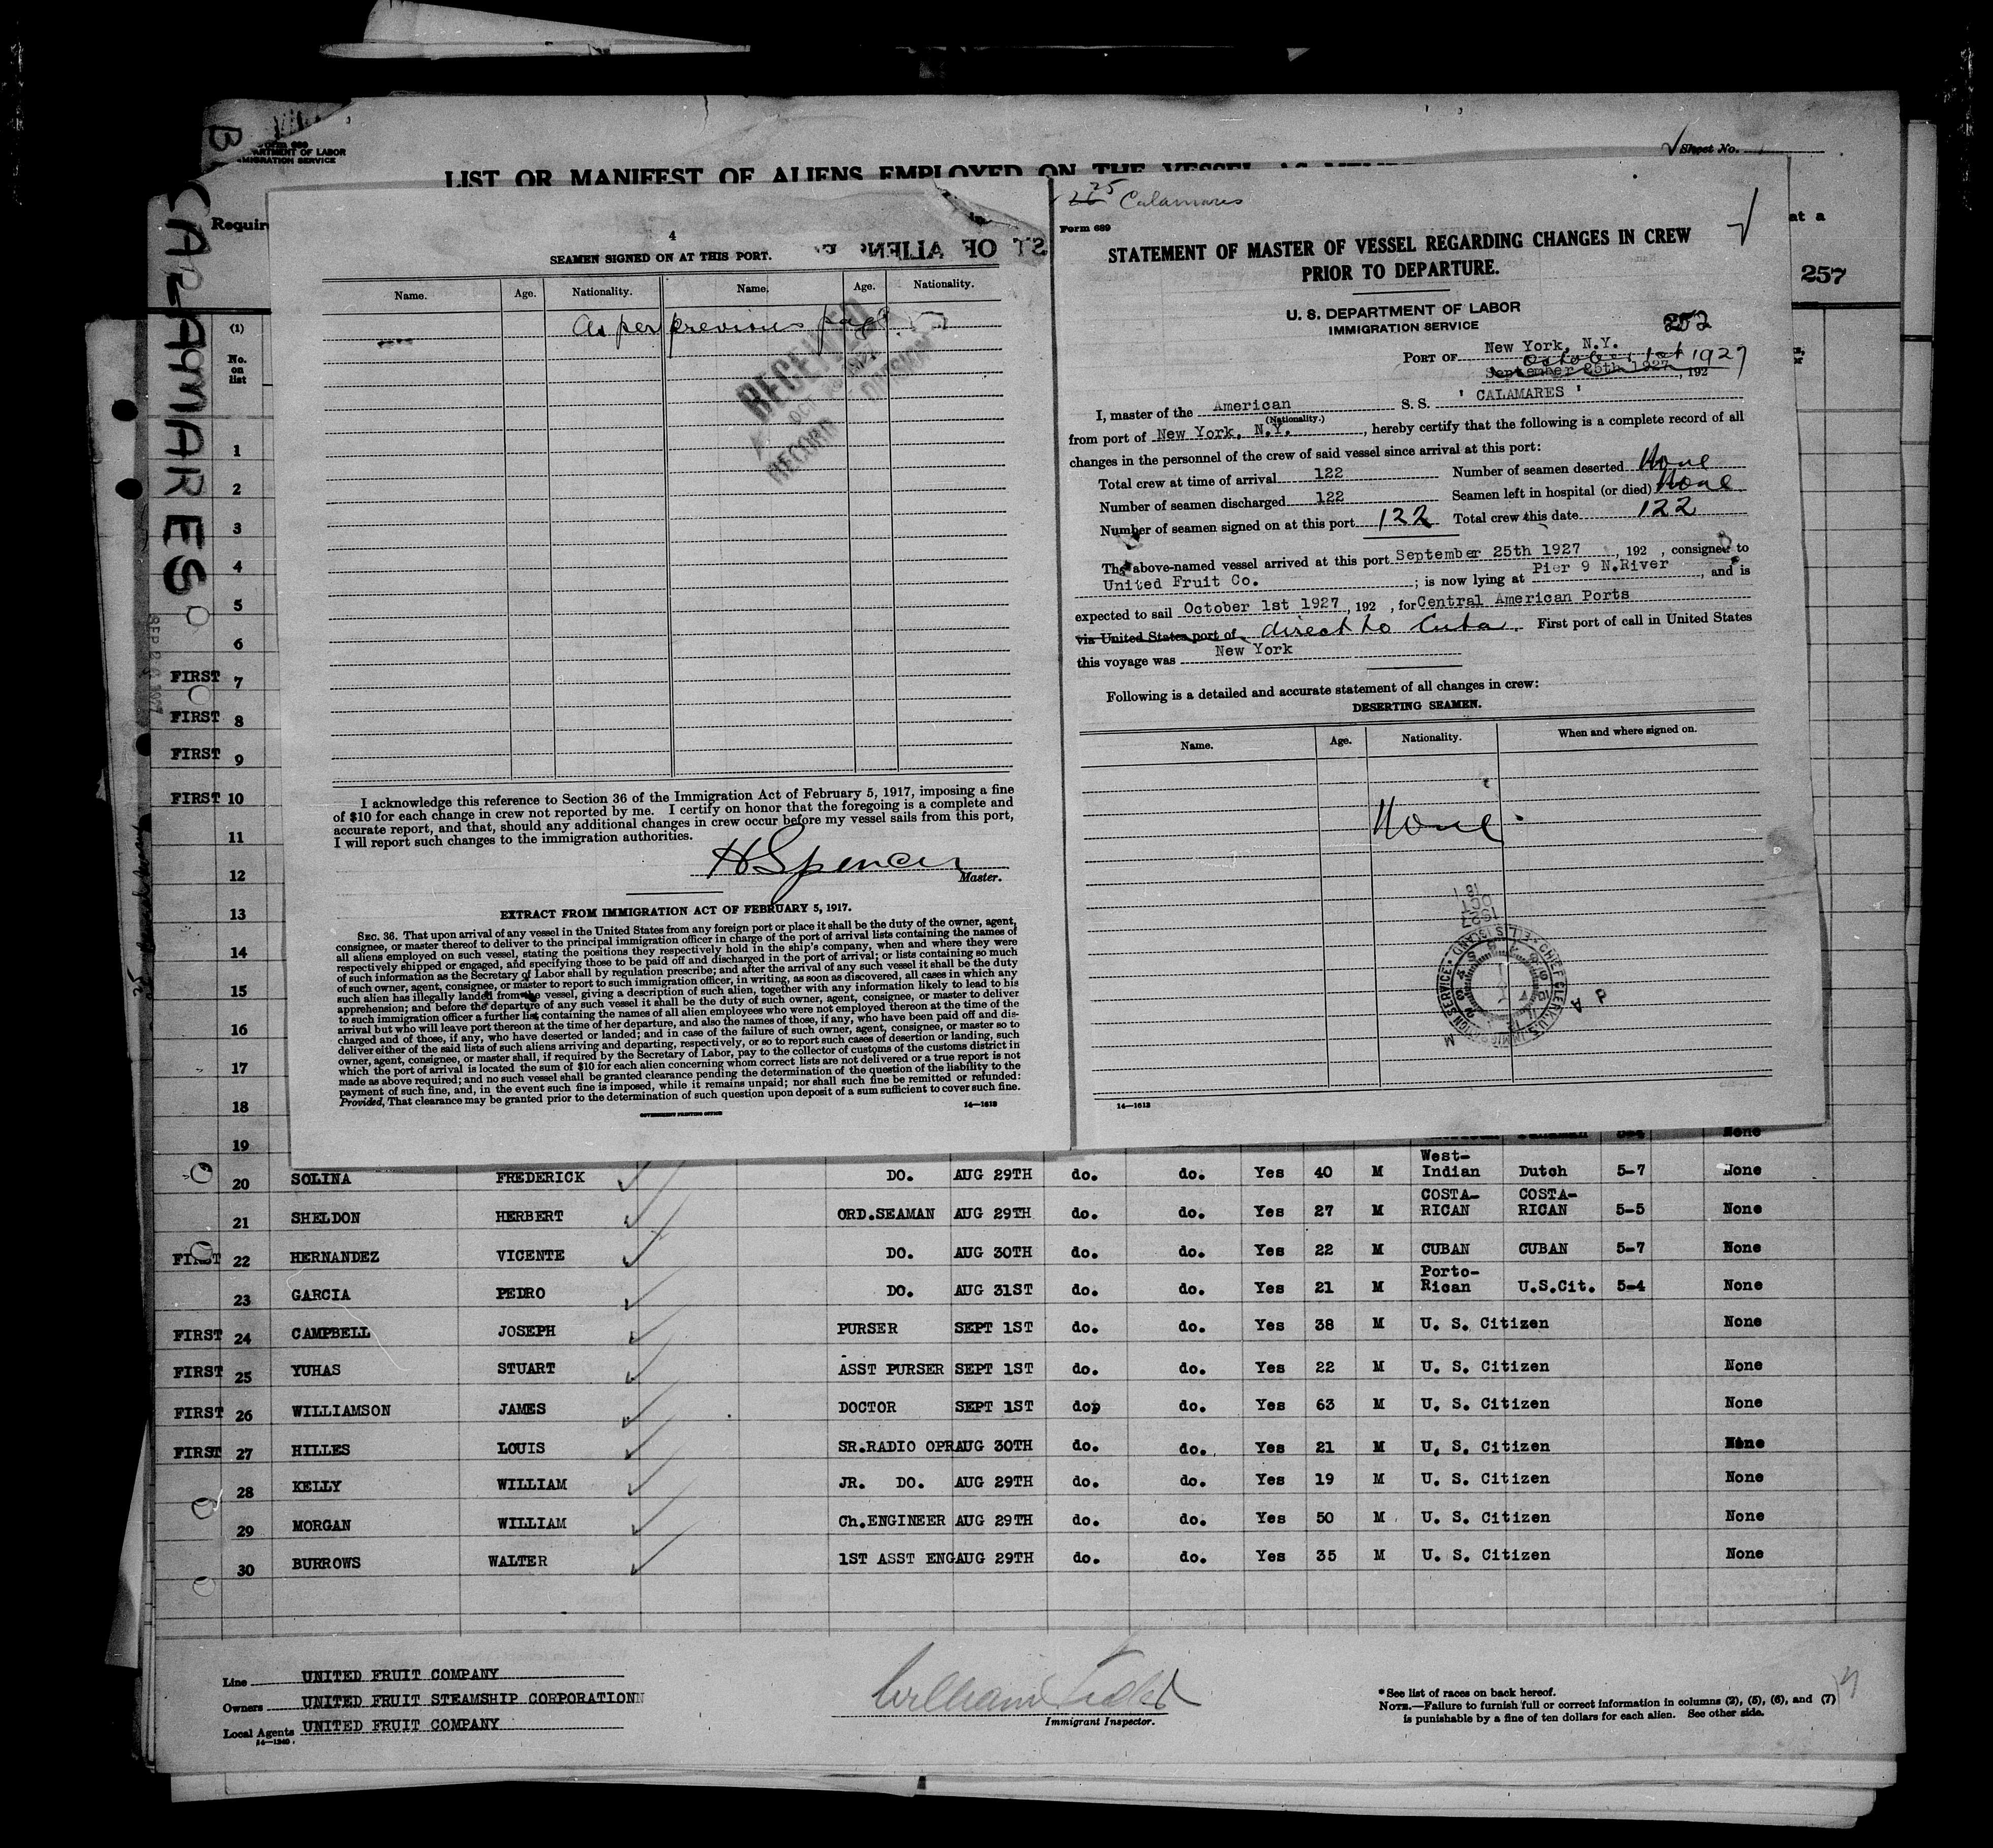 CALAMARES
LIST OR MANIFEST OF ALIENS EMPLOYED ON THE VESSEL
Sheet No.
at a
257
(1)
No.
on
list
1
2
3
4
5
6
FIRST 7
FIRST 8
FIRST 9
FIRST 10
11
12
13
14
15
16
17
18
19 None
4
SEAMEN SIGNED ON AT THIS PORT.
Name. Age. Nationality. Name. Age. Nationality.
As per previous page
RECEIVED
OCT
RECORD DIVISION
I acknowledge this reference to Section 36 of the Immigration Act of February 5, 1917, imposing a fine
of $10 for each change in crew not reported by me. I certify on honor that the foregoing is a complete and
accurate report, and that, should any additional changes in crew occur before my vessel sails from this port,
I will report such changes to the immigration authorities.
H Spencer
Master.
EXTRACT FROM IMMIGRATION ACT OF FEBRUARY 5, 1917.
SEC. 36. That upon arrival of any vessel in the United States from any foreign port or place it shall be the duty of the owner, agent,
consignee, or master thereof to deliver to the principal immigration officer in charge of the port of arrival lists containing the names of
all aliens employed on such vessel, stating the positions they respectively hold in the ship's company, when and where they were
respectively shipped or engaged, and specifying those to be paid off and discharged in the port of arrival; or lists containing so much
of such information as the Secretary of Labor shall by regulation prescribe; and after the arrival of any such vessel it shall be the duty
of such owner, agent, consignee, or master to report to such immigration officer, in writing, as soon as discovered, all cases in which any
such alien has illegally landed from the vessel, giving a description of such alien, together with any information likely to lead to his
apprehension; and before the departure of any such vessel it shall be the duty of such owner, agent, consignee, or master to deliver
to such immigration officer a further list containing the names of all alien employees who were not employed thereon at the time of the
arrival but who will leave port thereon at the time of her departure, and also the names of those, if any, who have been paid off and dis-
charged and of those, if any, who have deserted or landed; and in case of the failure of such owner, agent, consignee, or master so to
deliver either of the said lists of such aliens arriving and departing, respectively, or so to report such cases of desertion or landing, such
owner, agent, consignee, or master shall, if required by the Secretary of Labor, pay to the collector of customs of the customs district in
which the port of arrival is located the sum of $10 for each alien concerning whom correct lists are not delivered or a true report is not
made as above required; and no such vessel shall be granted clearance pending the determination of the question of the liability to the
payment of such fine, and, in the event such fine is imposed, while it remains unpaid; nor shall such fine be remitted or refunded:
Provided, That clearance may be granted prior to the determination of such question upon deposit of a sum sufficient to cover such fine.
GOVERNMENT PRINTING OFFICE 14—1613
25 Calamares
Form 689
STATEMENT OF MASTER OF VESSEL REGARDING CHANGES IN CREW
PRIOR TO DEPARTURE.
U. S. DEPARTMENT OF LABOR
IMMIGRATION SERVICE
252
PORT OF New York, N.Y.
October 1st 1927
September 25th 1927, 192
I, master of the American S. S. ' CALAMARES '
(Nationality.)
from port of New York, N.Y., hereby certify that the following is a complete record of all
changes in the personnel of the crew of said vessel since arrival at this port:
Total crew at time of arrival 122 Number of seamen deserted None
Number of seamen discharged 122 Seamen left in hospital (or died) None
Number of seamen signed on at this port 122 Total crew this date 122
The above-named vessel arrived at this port September 25th 1927, 192 , consigned to
United Fruit Co. ; is now lying at Pier 9 N.River, and is
expected to sail October 1st 1927, 192 , for Central American Ports
via United States port of direct to Cuba. First port of call in United States
this voyage was New York
Following is a detailed and accurate statement of all changes in crew:
DESERTING SEAMEN.
Name. Age. Nationality. When and where signed on.
None.
14—1613
20 SOLINA FREDERICK DO. AUG 29TH do. do. Yes 40 M West-Indian Dutch 5-7 None
21 SHELDON HERBERT ORD.SEAMAN AUG 29TH do. do. Yes 27 M COSTA-RICAN COSTA-RICAN 5-5 None
FIRST 22 HERNANDEZ VICENTE DO. AUG 30TH do. do. Yes 22 M CUBAN CUBAN 5-7 None
23 GARCIA PEDRO DO. AUG 31ST do. do. Yes 21 M Porto-Rican U.S.Cit. 5-4 None
FIRST 24 CAMPBELL JOSEPH PURSER SEPT 1ST do. do. Yes 38 M U. S. Citizen None
FIRST 25 YUHAS STUART ASST PURSER SEPT 1ST do. do. Yes 22 M U. S. Citizen None
FIRST 26 WILLIAMSON JAMES DOCTOR SEPT 1ST do. do. Yes 63 M U. S. Citizen None
FIRST 27 HILLES LOUIS SR.RADIO OPR AUG 30TH do. do. Yes 21 M U. S. Citizen None
28 KELLY WILLIAM JR. DO. AUG 29TH do. do. Yes 19 M U. S. Citizen None
29 MORGAN WILLIAM Ch.ENGINEER AUG 29TH do. do. Yes 50 M U. S. Citizen None
30 BURROWS WALTER 1ST ASST ENG AUG 29TH do. do. Yes 35 M U. S. Citizen None
Line UNITED FRUIT COMPANY
Owners UNITED FRUIT STEAMSHIP CORPORATION
Local Agents UNITED FRUIT COMPANY
14—1240
William
Immigrant Inspector.
*See list of races on back hereof.
NOTE.—Failure to furnish full or correct information in columns (2), (5), (6), and (7)
is punishable by a fine of ten dollars for each alien. See other side.